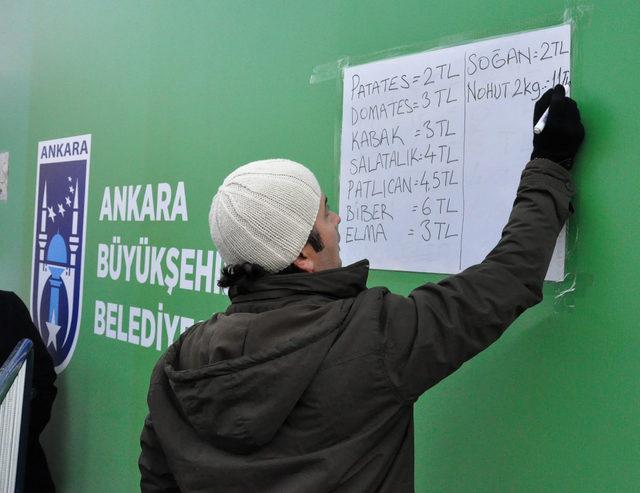 ANKARA
ANKARA
BÜYÜKŞEHİR
BELEDİYE
PATATES = 2 TL
DOMATES = 3 TL
KABAK = 3TL
SALATALIK = 4 TL
PATLICAN = 4,5 TL
BİBER = 6 TL
ELMA = 3 TL
SOĞAN = 2 TL
NOHUT 2kg = 11 TL